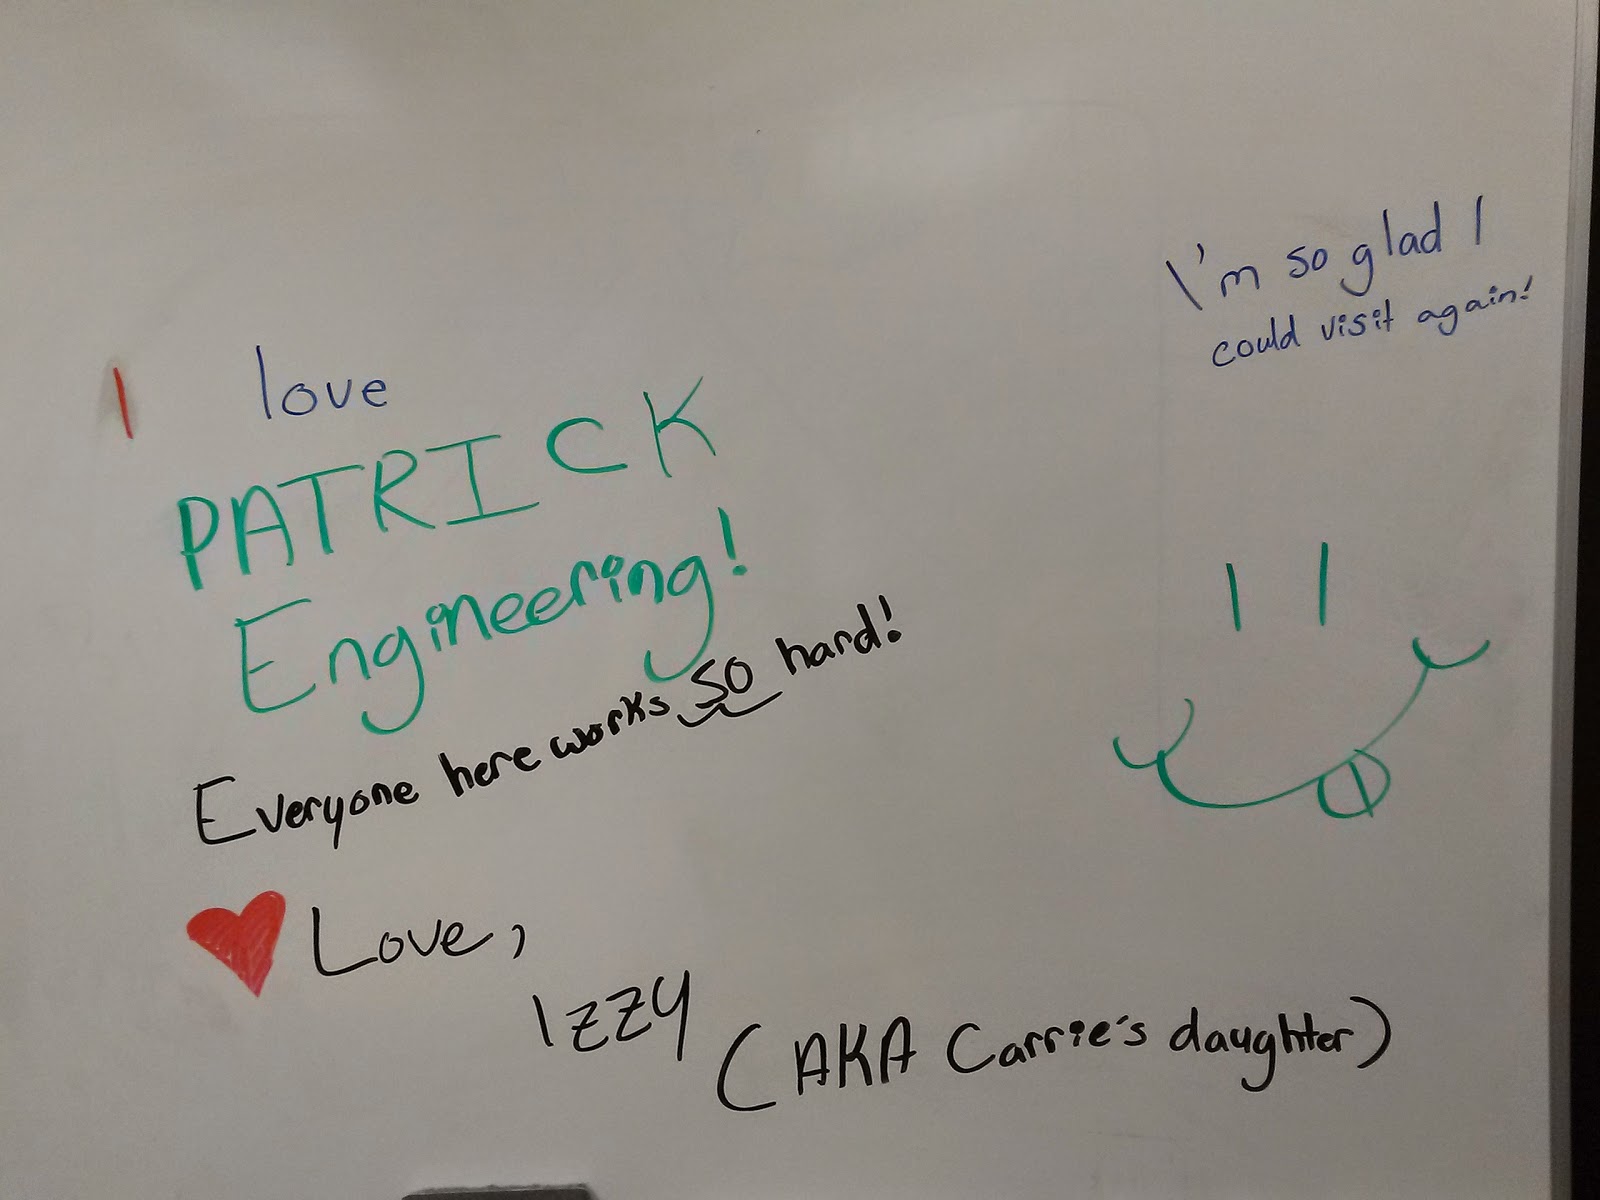 I love
PATRICK
Engineering!
Everyone here works SO hard!
Love,
IZZY
(AKA Carrie's daughter)
I'm so glad I
could visit again!